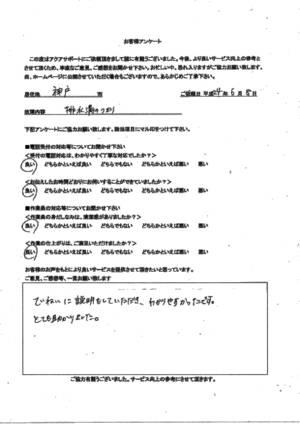 お客様アンケート
この度はアクアサポートにご依頼頂きまして誠に有難うございました。今後、より良いサービス向上の参考と
させて頂くため、率直なご意見、ご感想をお聞かせ下さい。お忙しい中、恐れ入りますがご協力お願い致します。
尚、ホームページに公開させていただく場合もございますので、あらかじめご了承下さい。
居住地 神戸 市 ご依頼日 平成24年6月8日
依頼内容 排水溝のつまり
下記アンケートにご協力お願い致します。該当項目にマル印をつけて下さい。
■電話受付の対応等についてお聞かせ下さい
<受付の電話対応は、わかりやすく丁寧な対応でしたか?>
良い どちらかといえば良い どちらでもない どちらかといえば悪い 悪い
<お伝えしたお時間どおりにお伺いすることができていましたか?>
良い どちらかといえば良い どちらでもない どちらかといえば悪い 悪い
■作業員の対応等についてお聞かせ下さい
<作業員の身だしなみは、清潔感がありましたか?>
良い どちらかといえば良い どちらでもない どちらかといえば悪い 悪い
<作業の仕上がりは、ご満足いただけましたか?>
良い どちらかといえば良い どちらでもない どちらかといえば悪い 悪い
お客様のお声をもとにより良いサービスを提供させて頂きたいと思っています。
ご意見、ご感想等、一言お願い致します
ていねいに説明をしていただき、わかりやすかったです。
とても助かりました。
ご協力有難うございました。サービス向上の参考にさせて頂きます。